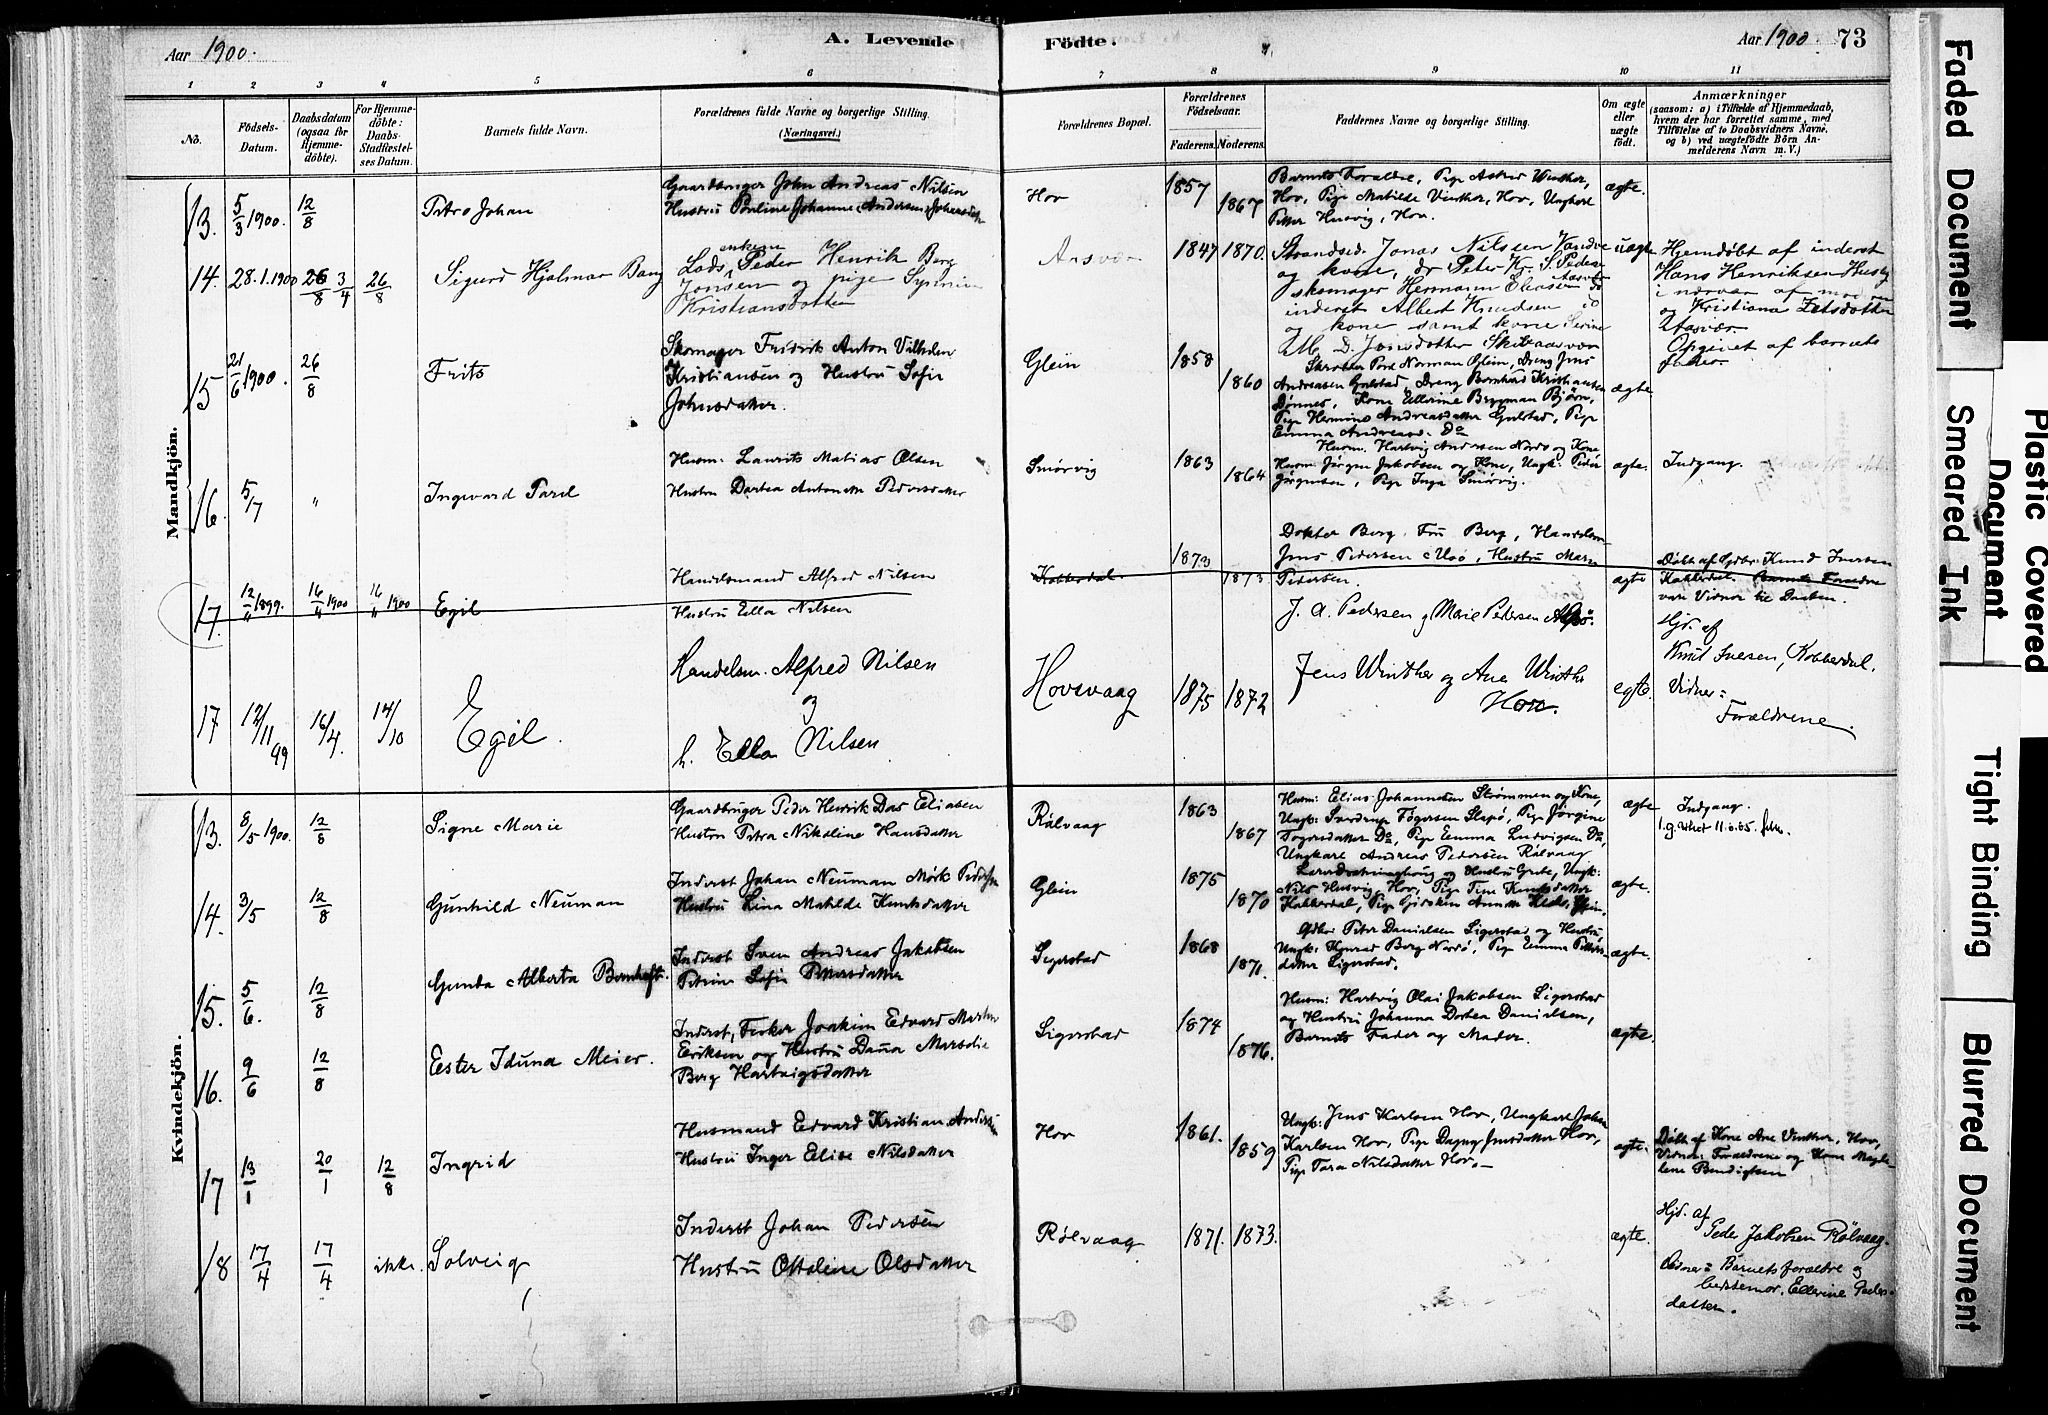 Aar 1900.
A. Levende Födte.
Aar 1900. 73
1 2 3 4 5 6 7 8 9 10 11
No.
Födsels-
Datum.
Daabsdatum
(ogsaa for
Hjemme-
döbte).
For Hjemme-
döbte:
Daabs-
Stadfæstel-
ses Datum.
Barnets fulde Navn.
Forældrenes fulde Navne og borgerlige Stilling.
(Næringsvei.)
Forældrenes Bopæl.
Forældrenes
Födselsaar.
Faderens. Moderens.
Faddernes Navne og borgerlige Stilling.
Om ægte
eller
uægte
födt.
Anmærkninger
(saasom: a) i Tilfælde af Hjemmedaab,
hvem der har forrettet samme, med
Tilföielse af to Daabsvidners Navne,
og b) ved uægtefödte Börn An-
melderens Navn m. V.)
Mandkjön.
13. 5/3 1900. 12/8
Petro Johan
Gaardbruger John Andreas Nilsen
Hustru Pauline Johanne Andersen
Hov
1857 1867
Barnets Forældre, Pige Astrid Winther,
Hov, Pige Matilde Vinther, Hov, Ungkarl
Petter Husvig, Hov.
ægte.
14. 28.1.1900 26/8 3/4 26/8
Sigurd Hjalmar Bang
Lods, enkem Peder Henrik Berg
Jonsen og pige
Kristiansdatter
Aasvær
1847 1870.
Strandsid. Jonas Nilssen Vandve
og kone, dr Peter Kr. S. Peders
skomager Hermann Eliassen
Aasvær
inderst Albert Knudsen
og kone samt kone Serine
M. D. Jonsdotter Skibaasvær
uægte
Hjemdøbt af inderst
Hans Henriksen Husby
i nærvær af mor
og Kristiana
Aasvær.
Opgivet af barnets
fader.
15 21/6 1900. 26/8
Frits
Skomager Fridrik Anton Vilhelm
Kristiansen og Hustru Sofie
Johnsdatter.
Glein
1858 1860
Norman Glein, Dreng Jens
Andreasen Gulstad, Dreng Bernhard Kristiansen
Dønnes, Kone Ellerine Bergman Bjørn,
Pige Hermine Andreasdatter Gulstad, Pige
Emma Andreasd. Do
ægte
16. 5/7 "
Ingvard Parel
Husm: Laurits Matias Olsen
Hustru Dortea Antonette Pedersdatter
Smørvig
1863 1864
Husm. Hartvig Andersen Nordø og Kone
Husm: Jørgen Jakobsen og Kone, Ungk: Peder
Jørgensen, Pige Inga Smørvig.
ægte.
Indgang.
17. 12/11 1899. 16/4 1900 16/11 1900
Egil
Handelsmand Alfred Nilsen
Hustru Ella Nilsen
Kobberdal.
1873 1873
Doktor Berg, Fru Berg, Handelsm
Jens Pedersen Usø, Hustru Marie
Pedersen.
J. A. Pedersen og Marie Pedersen
ægte
Døbt af Gdbr. Knud Iversen
Kobberdal. Barnets Forældre
vare Vidner til Daaben.
17 12/11 99 16/4. 14/10
Egil.
Handelsm. Alfred Nilsen
og
h. Ella Nilsen
Hovsvaag
1875 1872
Jens Winther og Ane Winther
Hov.
egte.
Hjd. af
Knut Ivesen, Kobberdal.
Vidner:
Forældrene.
Kvindekjön.
13. 8/5 1900. 12/8
Signe Marie
Gaardbruger Peder Henrik Das Eliasen
Hustru Petra Nikoline Hansdatter
Rölvaag
1863 1867
Husm: Elias Johannesen Strømmen og Kone,
Ungk: Sverdrup Togersen Slapø, Pige Jørgine
Togersdatter Do, Pige Emma Ludvigsen Do,
Ungkarl Andreas Pedersen Rølvaag
ægte
Indgang.
14. 3/5 12/8
Gunhild Neuman
Inderst Johan Neuman Mørk Pedersen
Hustru Lina Matilde Knutsdatter
Glein
1875 1870
og Hustru Grete, Ungk:
Nils Husvig, Hov, Pige Tine Knutsdatter
Kobberdal, Pige Gidskin Klods, Glein.
ægte.
15. 5/6. 12/8
Gunda Alberta Bernhoft.
Inderst Sven Andreas Jakobsen
Petrine Sofie Pettersdatter
Segerstad
1868 1871.
Gdbr Peter Danielsen Sigerstad og Hustru
Ungk: Konrad Berg Nordø, Pige Emma Petters-
datter Sigerstad.
ægte.
16. 9/6 12/8
Ester Iduna Meier.
Inderst, Fisker Joakim Edvard Martin
Eriksen og Hustru Dana Marselie
Berg Hartvigsdatter
Sigerstad
1874 1876.
Husm: Hartvig Olai Jakobsen Sigerstad
og Hustru Johanna Dortea Danielsen,
Barnets Fader og Moder.
ægte.
17 13/1 20/1 12/8
Ingrid
Husmand Edvard Kristian Andersen
Hustru Inger Elise Nilsdatter
Hov
1861. 1859
Ungk: Jens Karlsen Hov, Ungkarl Johan
Karlsen Hov, Pige Dagny Jensdatter Hov,
Pige Tara Nilsdatter Hov.
ægte.
Døbt af Kone Ane Vinther, Hov,
Vidner: Forældrene og Kone Magda-
lene Bendigtsen
18 17/4 17/4 ikke.
Solveig
Inderst Johan Pedersen
Hustru Ottoline Olsdatter
Rølvaag
1871. 1873.
ægte.
Hjd. af
Peder Jakobsen Rølvaag.
Vidner: Barnets forældre og
bestemor, Ellerine Peders-
datter.
Faded Document
Smeared Ink
Plastic Covered
Document
Tight Binding
Blurred Document